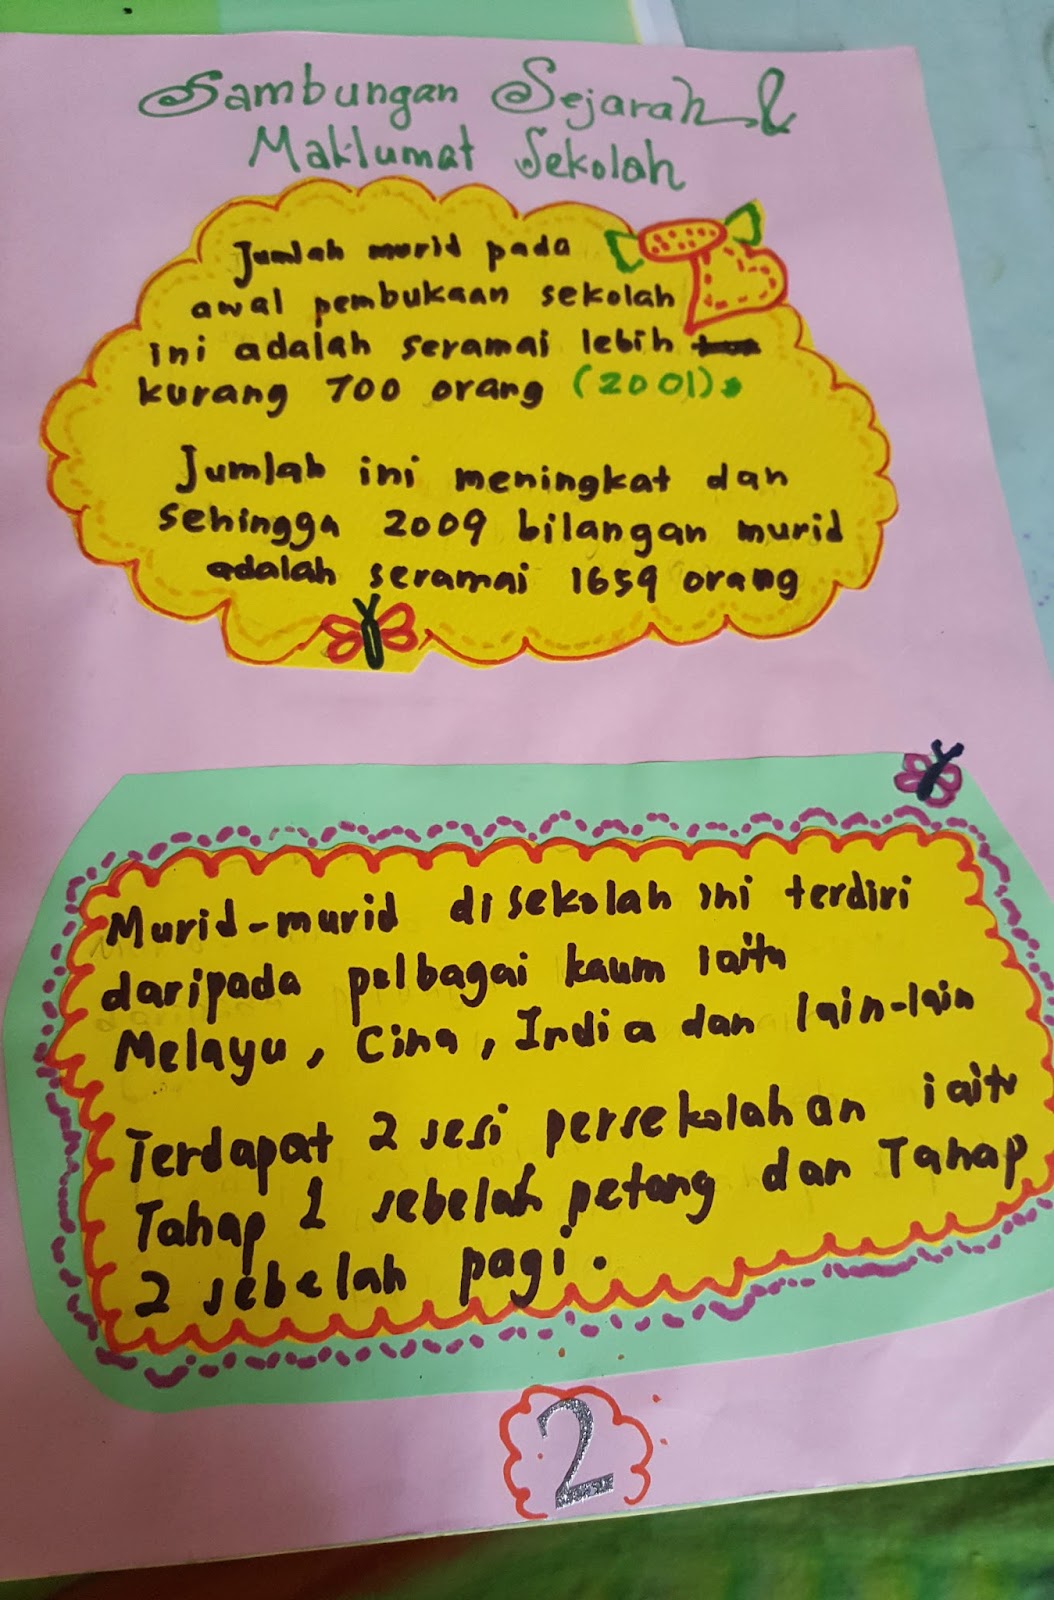 Sambungan Sejarah &
Maklumat Sekolah
Jumlah murid pada
awal pembukaan sekolah
ini adalah seramai lebih
kurang 700 orang (2001).
Jumlah ini meningkat dan
sehingga 2009 bilangan murid
adalah seramai 1659 orang
Murid-murid disekolah ini terdiri
daripada pelbagai kaum iaitu
Melayu, Cina, India dan lain-lain
Terdapat 2 sesi persekolahan iaitu
Tahap 1 sebelah petang dan Tahap
2 sebelah pagi.
2